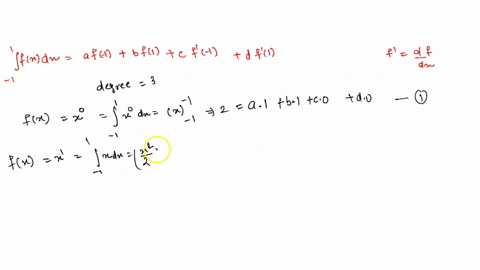 ∫₋₁¹ f(x)dx = a f(-1) + b f(1) + c f'(-1) + d f'(1)    f' = df/dx
degree = 3
f(x) = x⁰ = ∫₋₁¹ x⁰ dx = (x)₋₁⁻¹ ⇒ 2 = a.1 + b.1 + c.0 + d.0 — ①
f(x) = x¹ = ∫₋₁¹ x dx = (x²/2